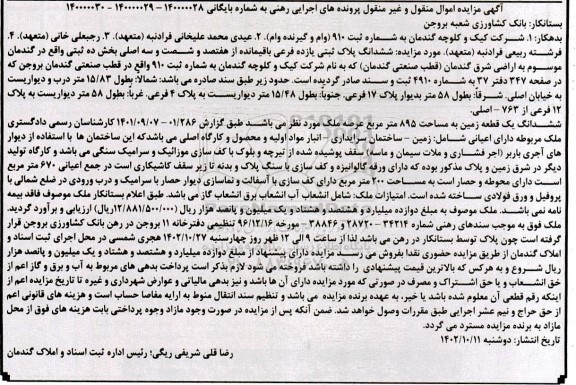 آگهی مزایده اموال منقول و غیر منقول پرونده های اجرایی رهنی به شماره بایگانی ۱۴۰۰۰۰۰۲۸ – ۱۴۰۰۰۰۰۲۹ – ۱۴۰۰۰۰۰۳۰
بستانکار: بانک کشاورزی شعبه بروجن
بدهکار: ۱. شرکت کیک و کلوچه گندمان به شماره ثبت ۹۱۰ (وام و گیرنده وام). ۲. عیدی محمد علیخانی فرادنبه (متعهد). ۳. رجبعلی خانی (متعهد). ۴.
فرشته ربیعی فرادنبه (متعهد). مورد مزایده: ششدانگ پلاک ثبتی یازده فرعی باقیمانده از هفتصد و شصت و سه اصلی بخش ده ثبتی واقع در گندمان
موسوم به اراضی شرق گندمان (قطب صنعتی گندمان) که به نام شرکت کیک و کلوچه گندمان به شماره ثبت ۹۱۰ واقع در قطب صنعتی گندمان بروجن که
در صفحه ۳۴۷ دفتر ۳۷ به شماره ۴۹۱۰ ثبت و سند صادر گردیده است. حدود زیر طبق سند صادره می باشد: شمالاً: بطول ۱۵/۸۳ متر درب و دیواریست
به خیابان اصلی. شرقاً: بطول ۵۸ متر بدیوار پلاک ۱۷ فرعی. جنوباً: بطول ۱۵/۴۸ متر دیواریست به پلاک ۴ فرعی. غرباً: ۵۸ متر دیواریست به پلاک
۱۲ فرعی از ۷۶۳ – اصلی.
ششدانگ یک قطعه زمین به مساحت ۸۹۵ متر مربع عرصه ملک مورد نظر می باشد طبق گزارش ۰۱/۲۸۶ – ۱۴۰۱/۰۹/۰۷ کارشناسان رسمی دادگستری
ملک مربوطه دارای اعیانی شامل: زمین – ساختمان سرایداری – انبار مواد اولیه و محصول و کارگاه اصلی می باشد که این ساختمان ها با استفاده از دیوار
های آجری باربر (اجر فشاری و ملات سیمان و ماسه) سقف پوشیده شده از تیرچه و بلوک با کف سازی موزائیک و سرامیک سنگی می باشد و کارگاه تولید
دیگر در شرق زمین و پلاک مذکور بوده که دارای ورق گالوانیزه و کف سازی با سنگ پلاک و بدنه تا زیر سقف کاشیکاری است در جمع اعیانی ۶۷۰ متر مربع
است دارای محوطه و حصار است به مساحت ۲۰۰ متر مربع دارای کف سازی با آسفالت و نماسازی دیوار حصار با سرامیک و درب ورودی در ضلع شمالی با
پروفیل و ورق فولادی ساخته شده است. امتیازات ملک: شامل انشعاب آب انشعاب برق انشعاب گاز می باشد. طبق اعلام بستانکار ملک موصوف فاقد بیمه
نامه نمی باشد. ملک موصوف به مبلغ دوازده میلیارد و هشتصد و هشتاد و یک میلیون و پانصد هزار ریال (۱۲/۸۸۱/۵۰۰/۰۰۰ریال) ارزیابی و برآورد گردید.
ملک فوق به موجب سندهای رهنی شماره ۳۴۲۱۴ – ۲۸۷۲۰ – ۳۸۸۴۶ مورخه ۹۶/۱۲/۱۶ تنظیمی دفترخانه ۱۱ بروجن در رهن بانک کشاورزی بروجن قرار
گرفته است چون پلاک توسط بستانکار در رهن می باشد لذا از ساعت ۹ الی ۱۲ ظهر روز چهارشنبه ۱۴۰۲/۱۰/۲۷ هجری شمسی در محل اجرای ثبت اسناد و
املاک گندمان از طریق مزایده حضوری نقدا بفروش می رسد. مزایده دارای پیشنهاد از مبلغ دوازده میلیارد و هشتصد و هشتاد و یک میلیون و پانصد هزار
ریال شروع و به هرکس که بالاترین قیمت پیشنهادی را داشته باشد فروخته می شود لازم بذکر است پرداخت بدهی های مربوط به آب و برق و گاز اعم از
حق انشعاب و یا حق اشتراک و مصرف در صورتی که مورد مزایده دارای آن ها باشد و نیز بدهی مالیاتی و عوارض شهرداری و غیره تا تاریخ مزایده اعم از
اینکه رقم قطعی آن معلوم شده باشد یا خیر، به عهده برنده مزایده می باشد و تنظیم سند انتقال منوط به ارایه مفاصا حساب است و هزینه های قانونی اعم
از حق حراج و نیم عشر اجرایی طبق مقررات وصول خواهد شد. ضمن آنکه پس از مزایده در صورت وجود مازاد وجوه پرداختی بابت هزینه های فوق از محل
مازاد به برنده مزایده مسترد می گردد.
تاریخ انتشار: دوشنبه ۱۴۰۲/۱۰/۱۱
رضا قلی شریفی ریگی؛ رئیس اداره ثبت اسناد و املاک گندمان